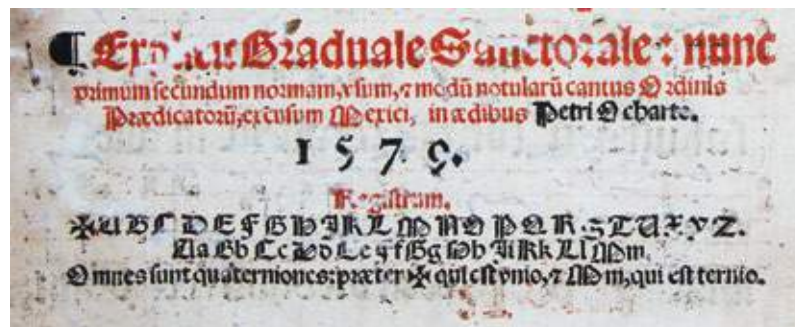 ¶ Explicit Graduale Sanctorale: nunc
primum secundum normam, vsum, ⁊ modū notularū cantus Ordinis
Prædicatorū, excusum Mexici, in ædibus Petri Ocharte.
1579.
Registrum.
✠ A B C D E F G H I K L M N O P Q R S T U X Y Z.
Aa Bb Cc Dd Ee Ff Gg Hh Ii Kk Ll Mm.
Omnes sunt quaterniones: præter ✠ qui est vnio, ⁊ Mm, qui est ternio.